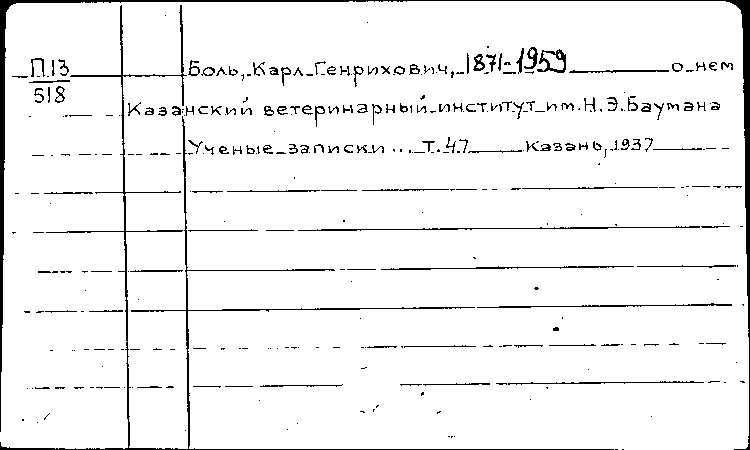 П13 Боль, Карл Генрихович, 1871-1959 о нем
518
Казанский ветеринарный институт им. Н. Э. Баумана
Ученые записки ... Т. 47 Казань, 1937